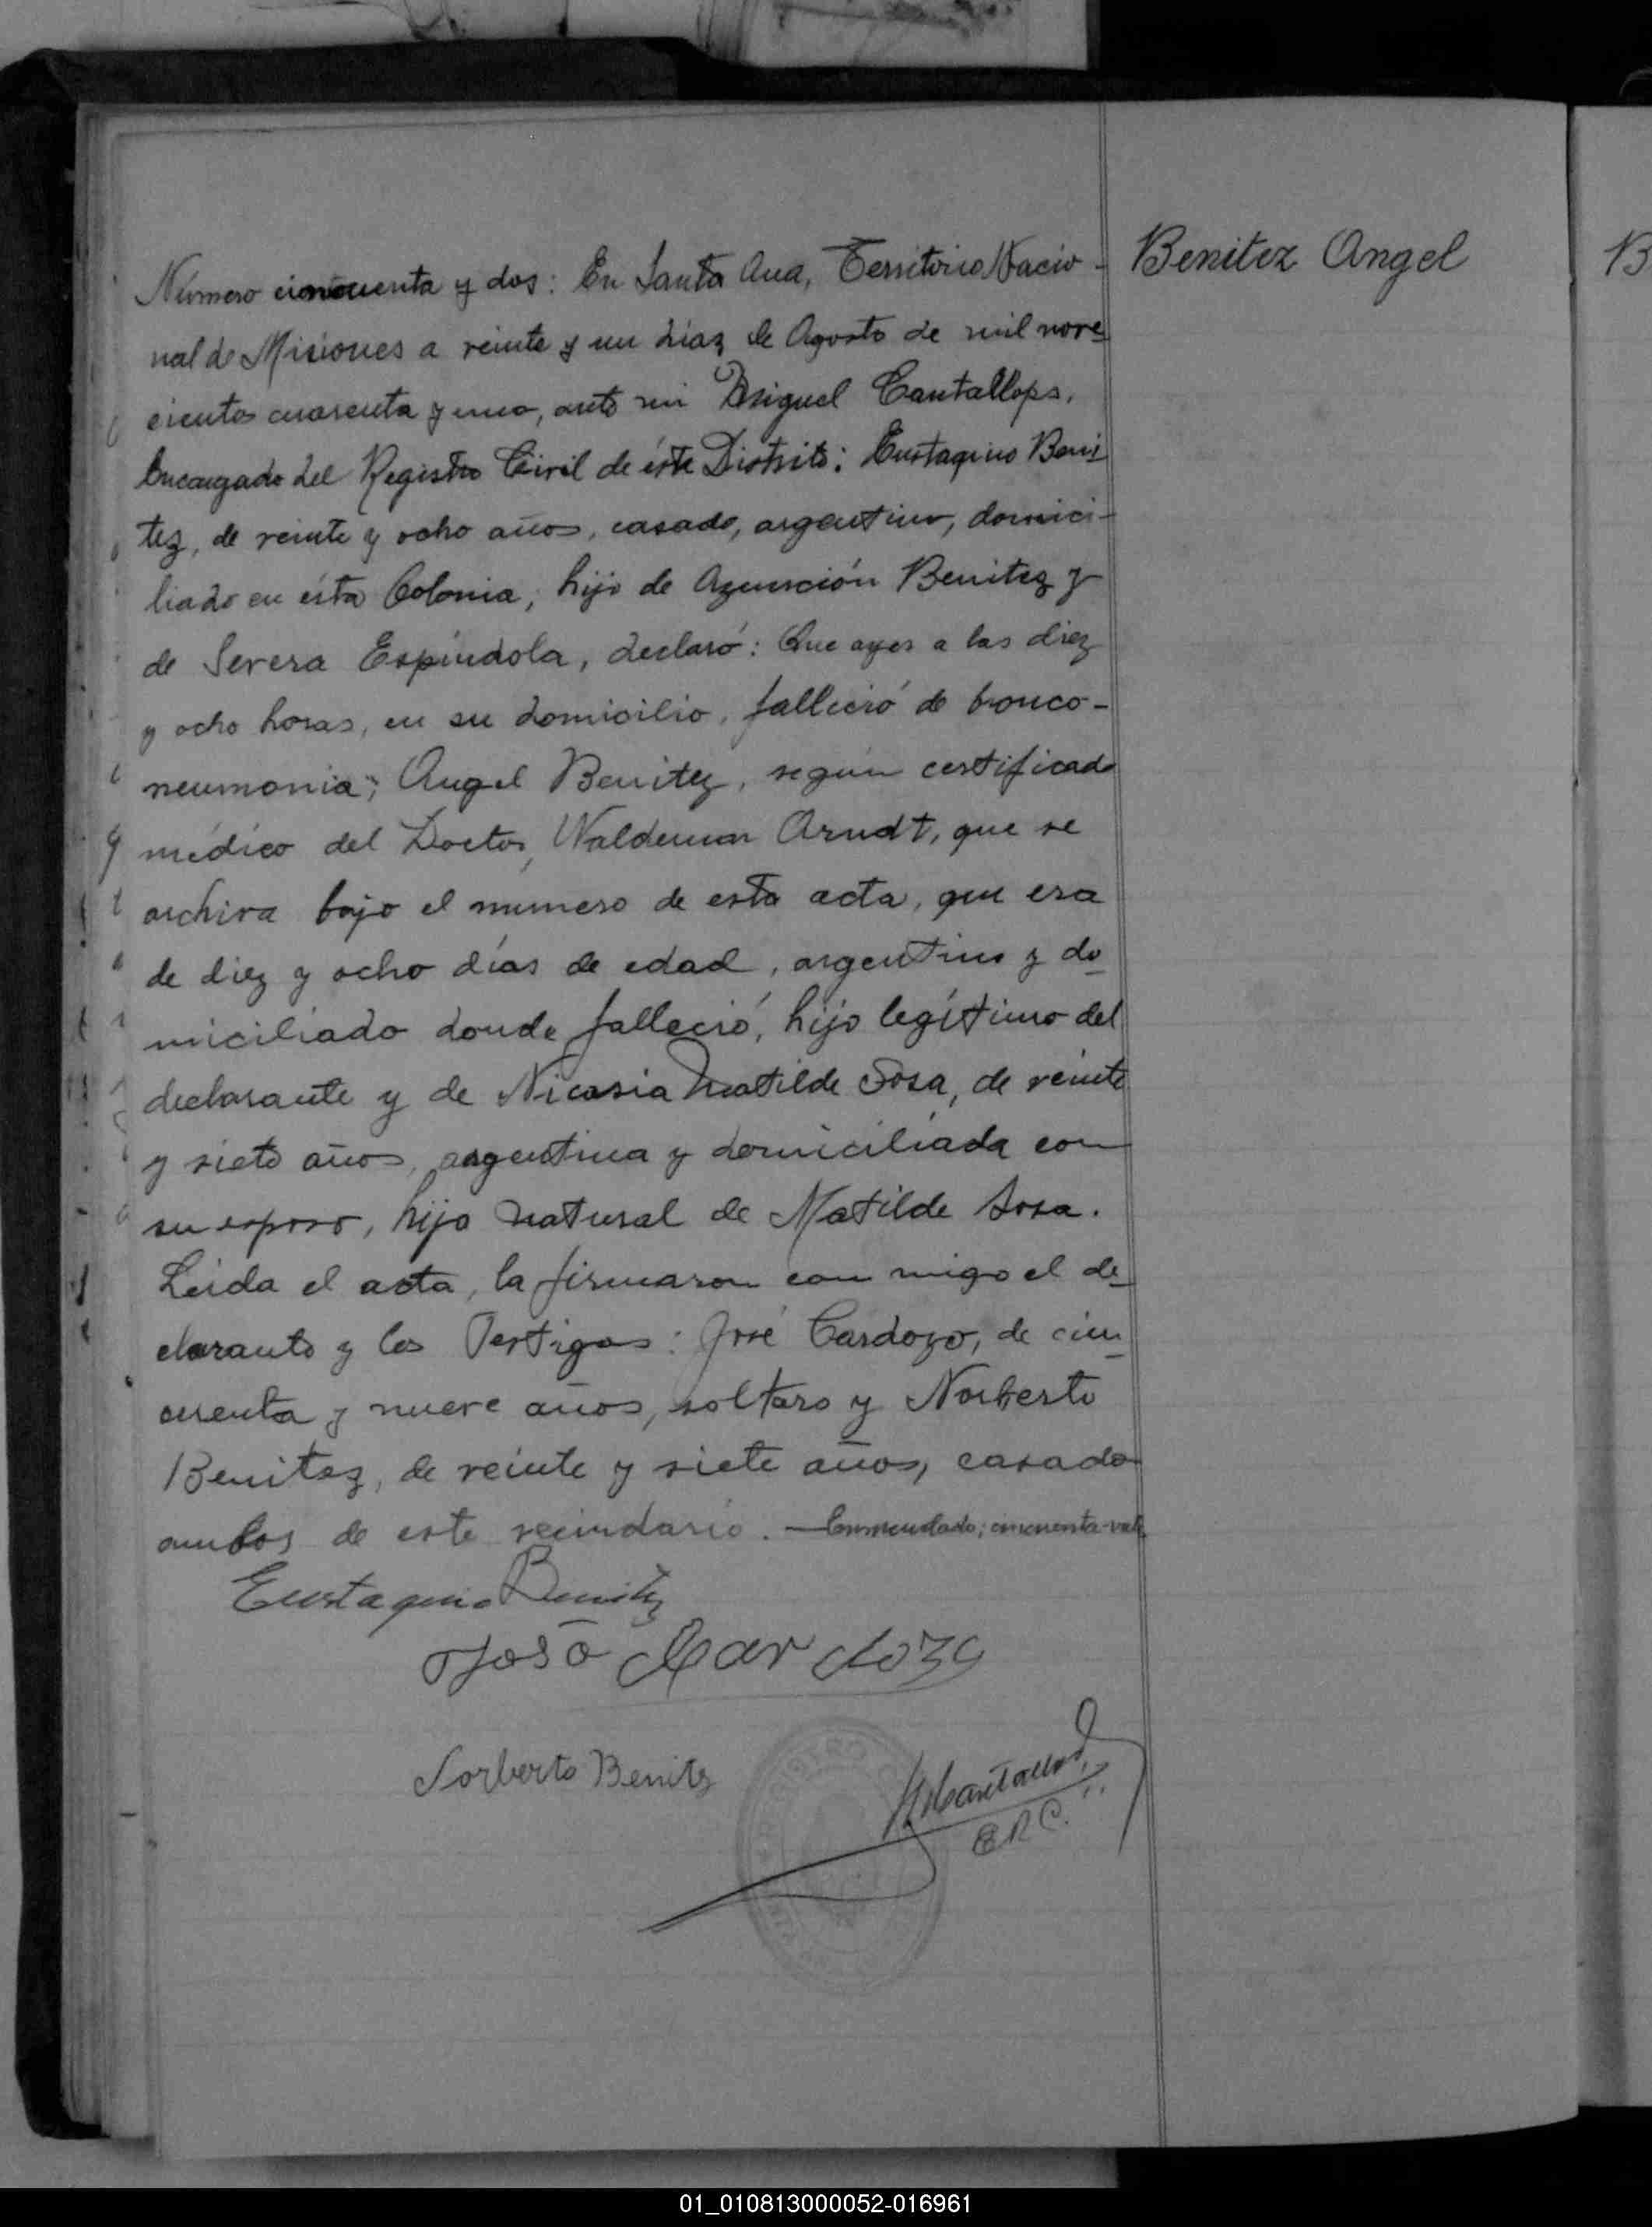 Benitez Angel
B
Número cincuenta y dos: En Santa Ana, Territorio Nacio-
nal de Misiones a veinte y un días de Agosto de mil nove
cientos cuarenta y uno, ante mi Miguel Cantallops,
Encargado del Registro Civil de éste Distrito: Eustaquio Beni
tez, de veinte y ocho años, casado, argentino, domici-
liado en ésta Colonia, hijo de Azunción Benitez y
de Severa Espíndola, declaró: Que ayer a las diez
y ocho horas, en su domicilio, falleció de bronco-
neumonia; Angel Benitez, según certificado
médico del Doctor, Waldemar Arndt, que se
archiva bajo el número de esta acta, que era
de diez y ocho días de edad, argentino y do
miciliado donde falleció, hijo legítimo del
declarante y de Nicasia Matilde Sosa, de veinte
y siete años, argentina y domiciliada con
su esposo, hija natural de Matilde Sosa.
Leida el acta, la firmaron con migo el de
clarante y los Testigos: José Cardozo, de cin
cuenta y nueve años, soltero y Norberto
Benitez, de veinte y siete años, casado
ambos de este vecindario. — Enmendado; cincuenta-vale
Eustaquio Benitez
José Cardozo
Norberto Benitez
M Cantallops
E.R.C.
01_010813000052-016961